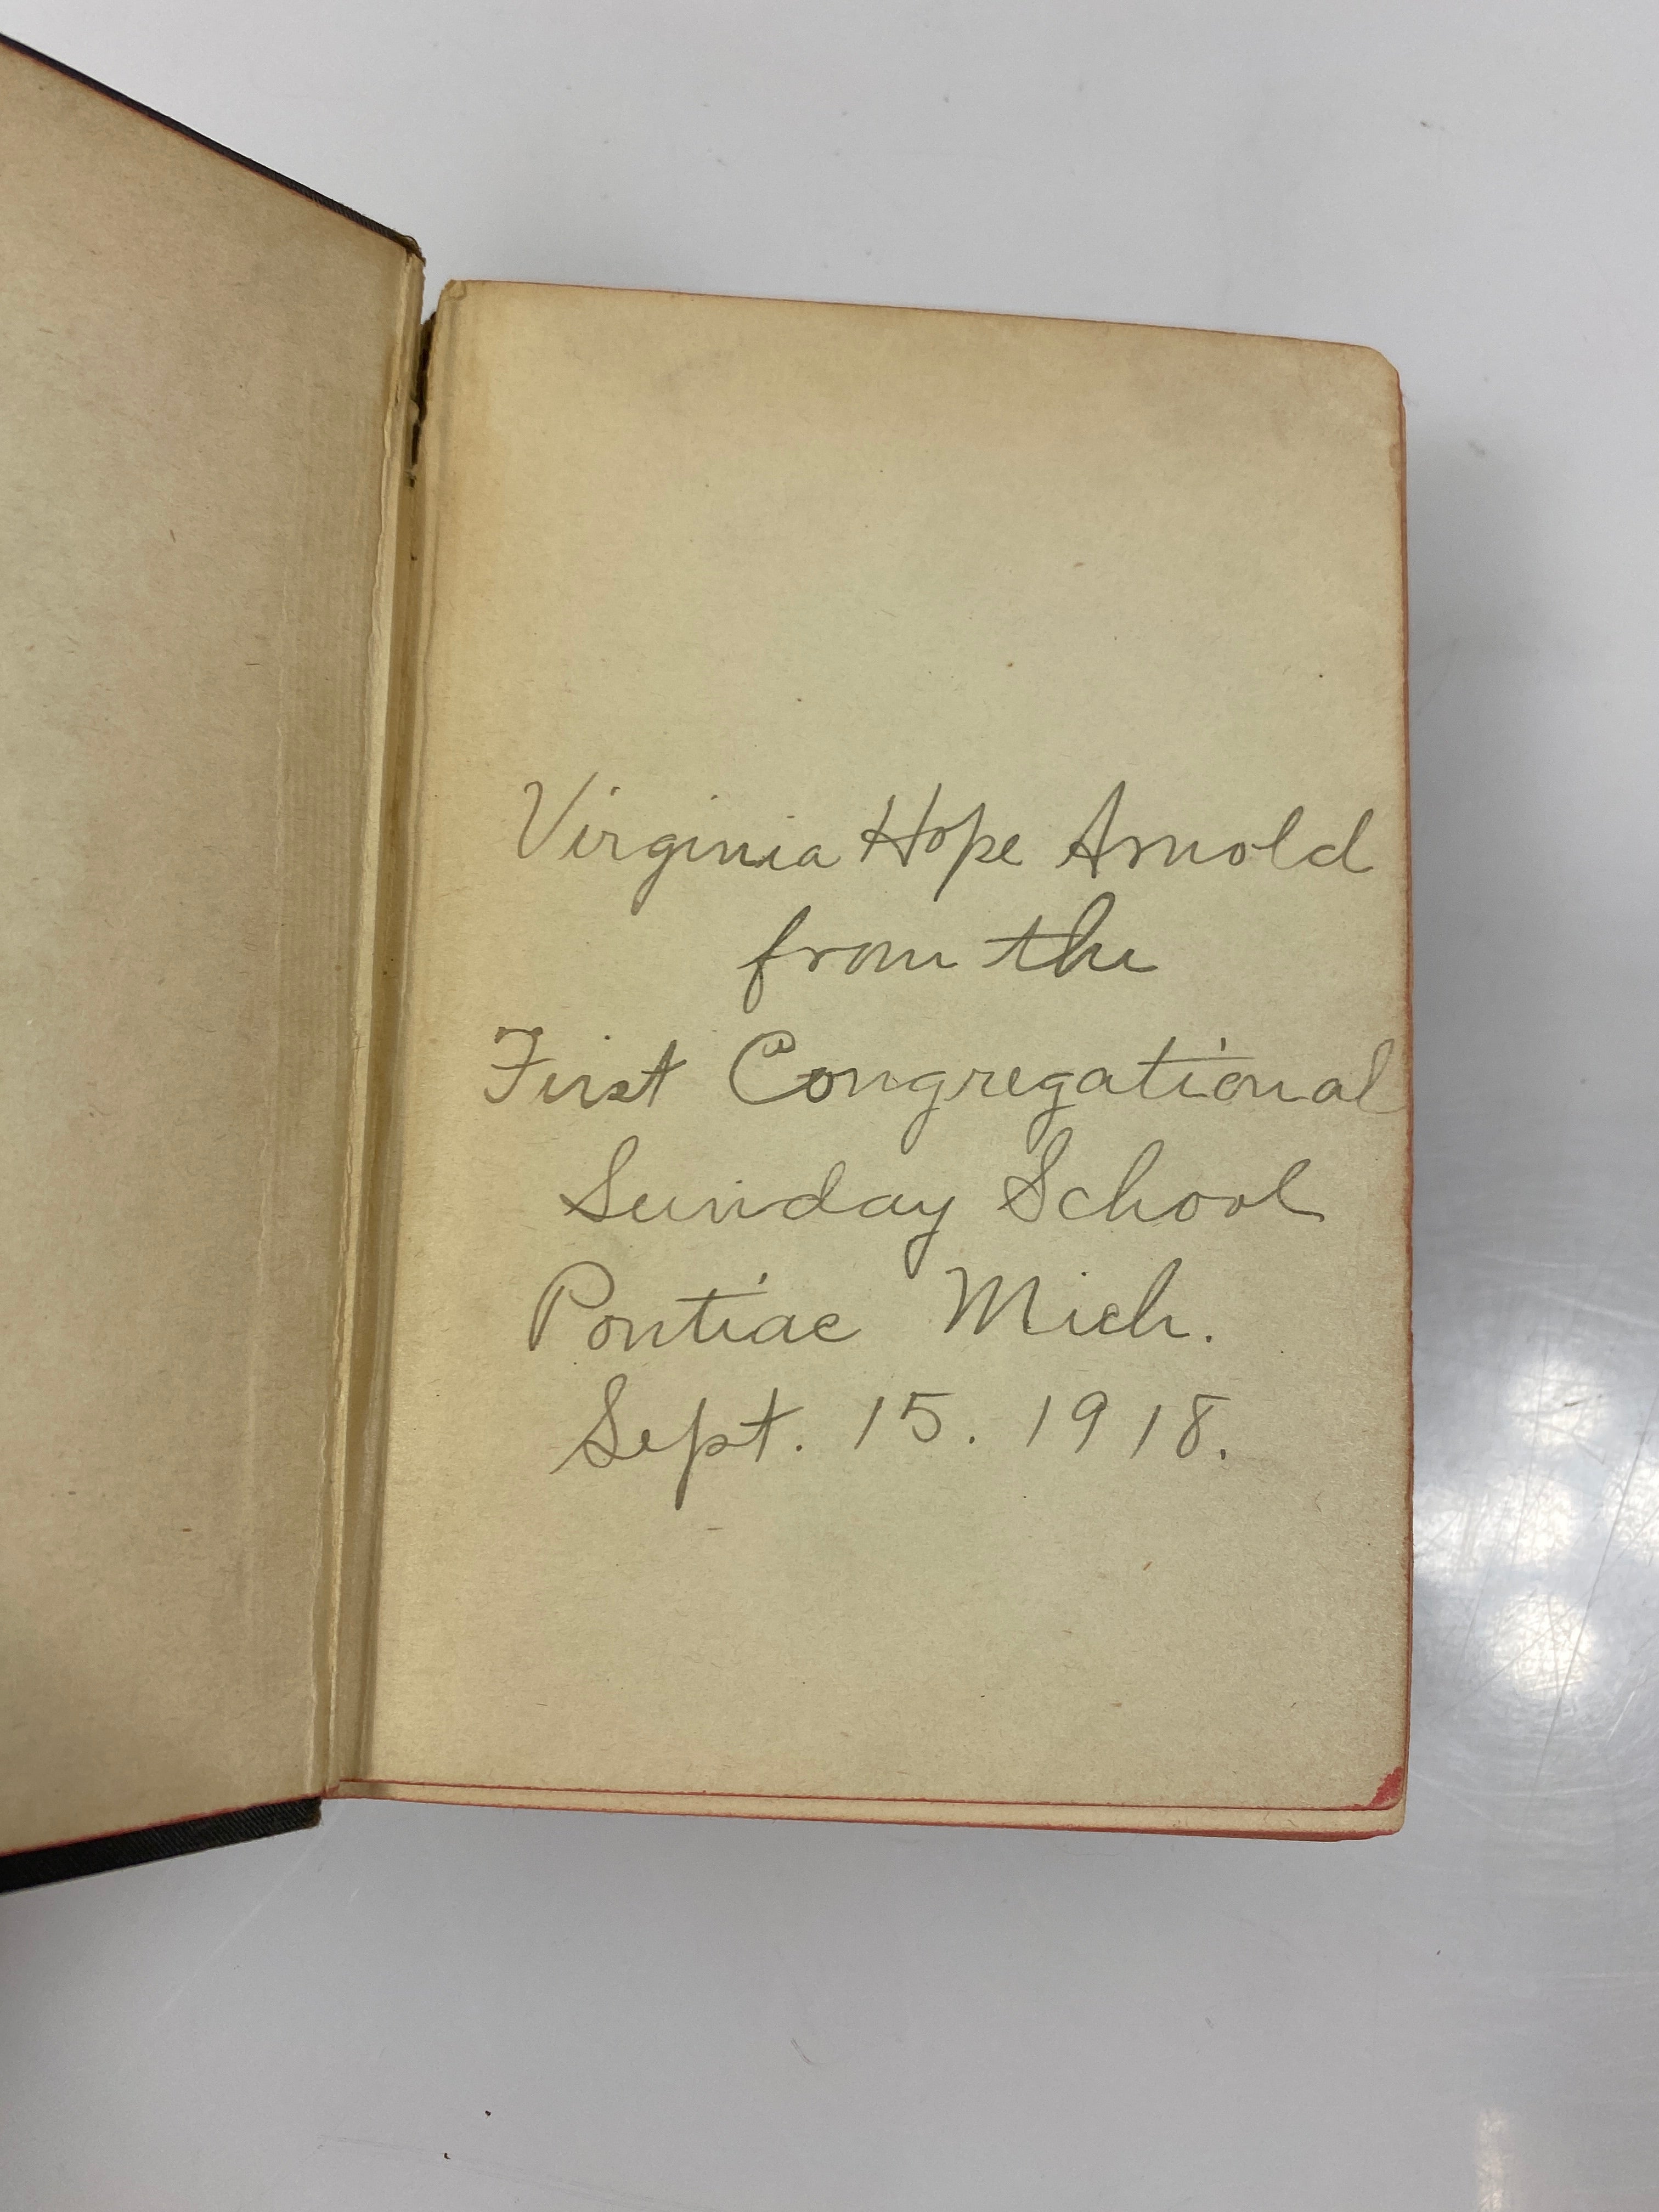 Virginia Hope Arnold
from the
First Congregational
Sunday School
Pontiac Mich.
Sept. 15. 1918.